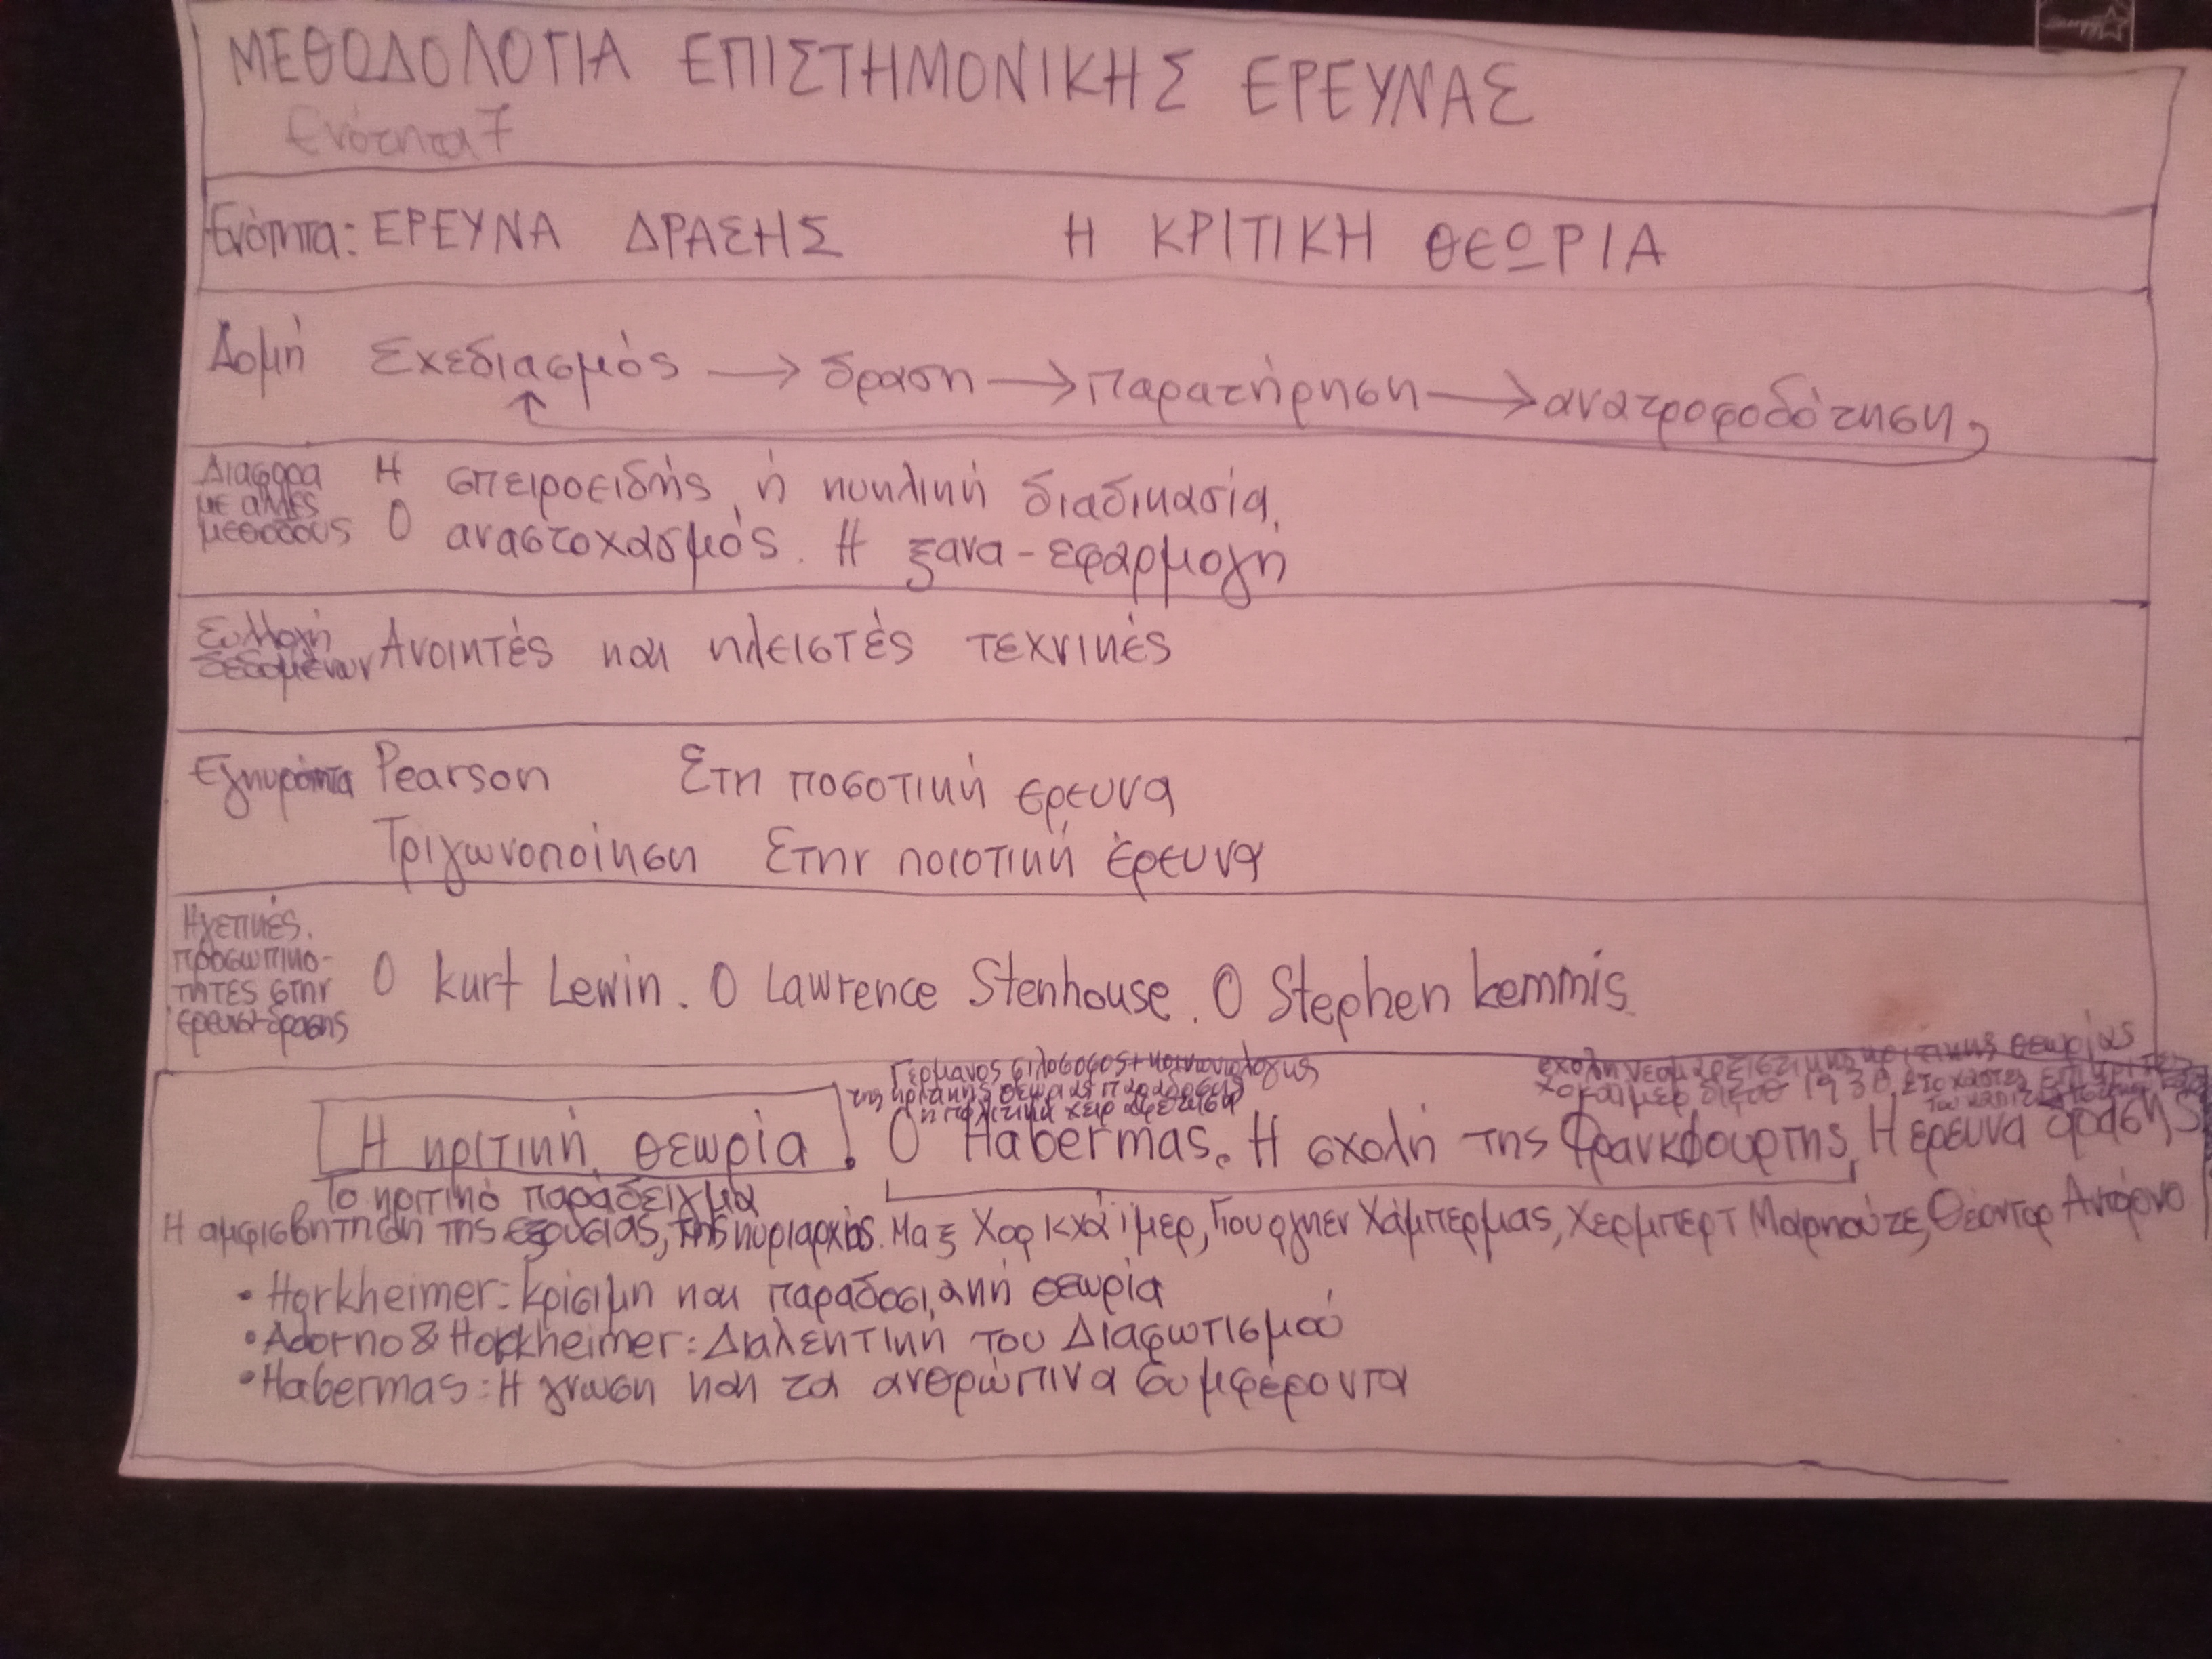 ΜΕΘΟΔΟΛΟΓΙΑ ΕΠΙΣΤΗΜΟΝΙΚΗΣ ΕΡΕΥΝΑΣ
Ενότητα 7
Ενότητα: ΕΡΕΥΝΑ ΔΡΑΣΗΣ Η ΚΡΙΤΙΚΗ ΘΕΩΡΙΑ
Δομή Σχεδιασμός → δραση → παρατήρηση → ανατροφοδότηση
Διαφορα με αλλες μεθοδους
Η σπειροειδής ή κυκλική διαδικασία.
Ο αναστοχασμός. Η ξανα-εφαρμογή
Συλλογή δεδομένων
Ανοικτές και κλειστές τεχνικές
Εγκυρότητα Pearson Στη ποσοτική ερευνα
Τριγωνοποίηση Στην ποιοτική έρευνα
Ηγετικές προσωπικο-
τητες στην
ερευνα-δρασης
Ο Kurt Lewin. Ο Lawrence Stenhouse. Ο Stephen kemmis.
Γερμανος φιλοσοφος+κοινωνιολογης
της κριτικης θεωριας παραδοσης
σχολη νεομαρξιστικης κριτικης θεωρίας
1930
Η κριτική θεωρία. Ο Habermas. Η σχολή της Φρανκφουρτης, Η ερευνα δρασης
Το κριτικό παράδειγμα
Η αμφισβητηση της εξουσιας, της κυριαρχίας. Μαξ Χορκχάϊμερ, Γιουργκεν Χάμπερμας, Χερμπερτ Μαρκούζε, Θέοντορ Αντόρνο
• Horkheimer: Κρίσιμη και παραδοσιακή θεωρία
• Adorno & Horkheimer: Διαλεκτική του Διαφωτισμού
• Habermas: Η γνωση και τα ανθρώπινα συμφέροντα